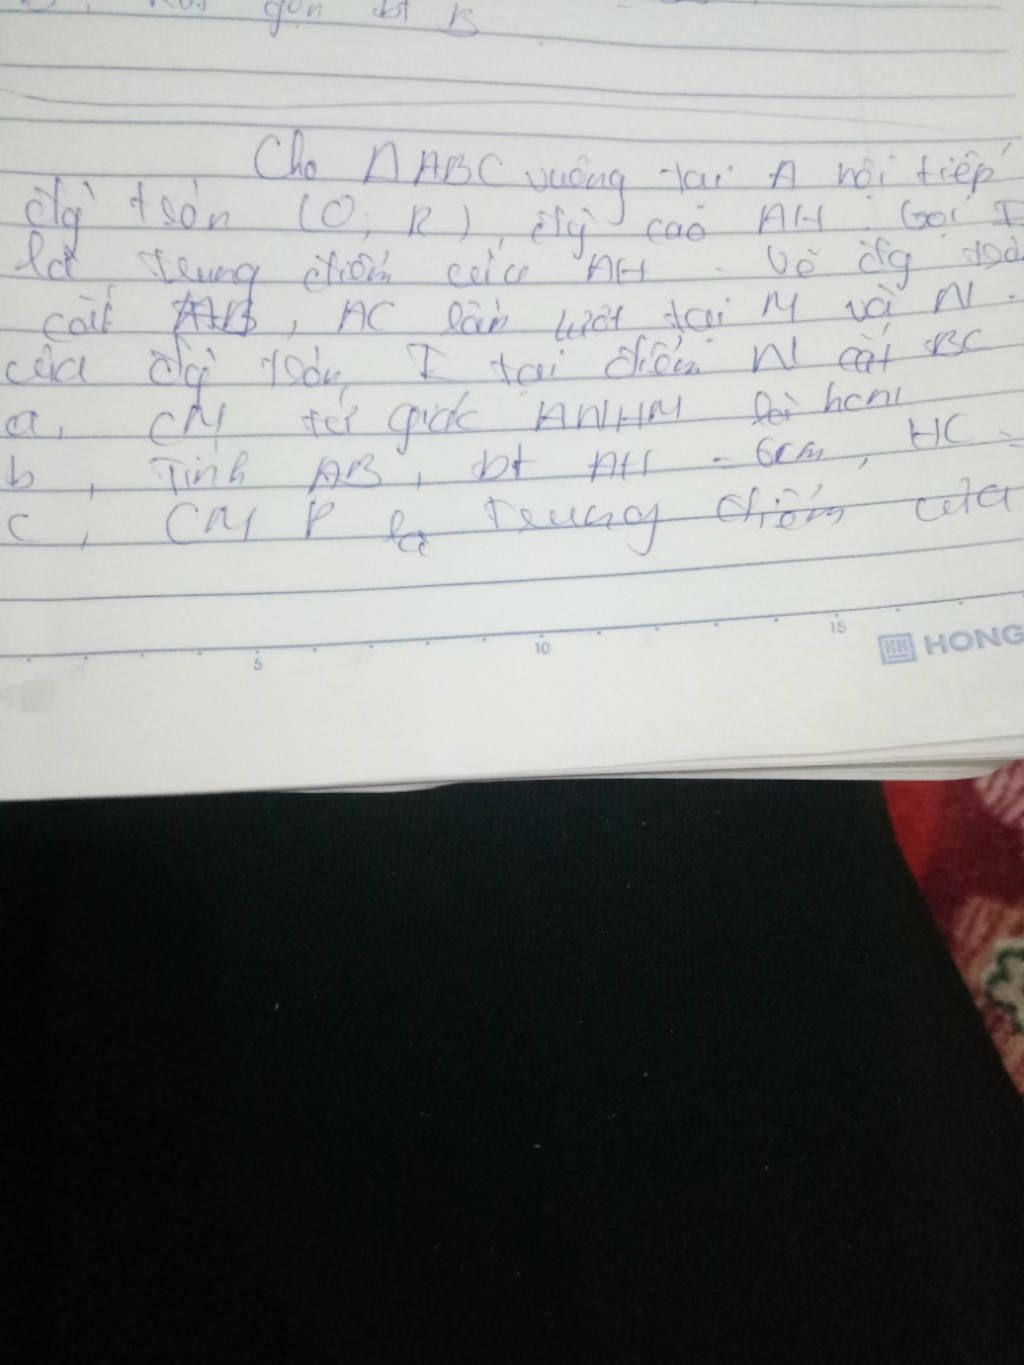 gọn bt B
Cho ΔABC vuông tại A nội tiếp
đg tròn (O; R), đg cao AH. Gọi I
là trung điểm của AH. Vẽ đg
cắt AB, AC lần lượt tại M và N.
của đg tròn I tại điểm N cắt BC
a, CM tứ giác ANHM là hcn
b, Tính AB, bt AH = 6cm, HC =
c, CM P là trung điểm của
5 10 15 HONG